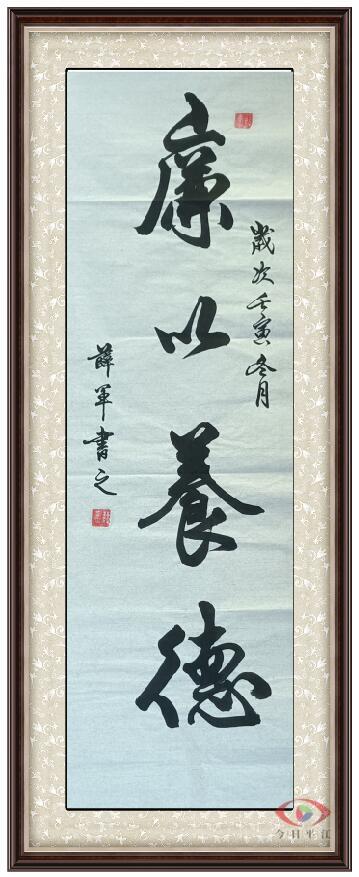 廉以養德
歲次壬寅冬月
薛軍書之
今日平江